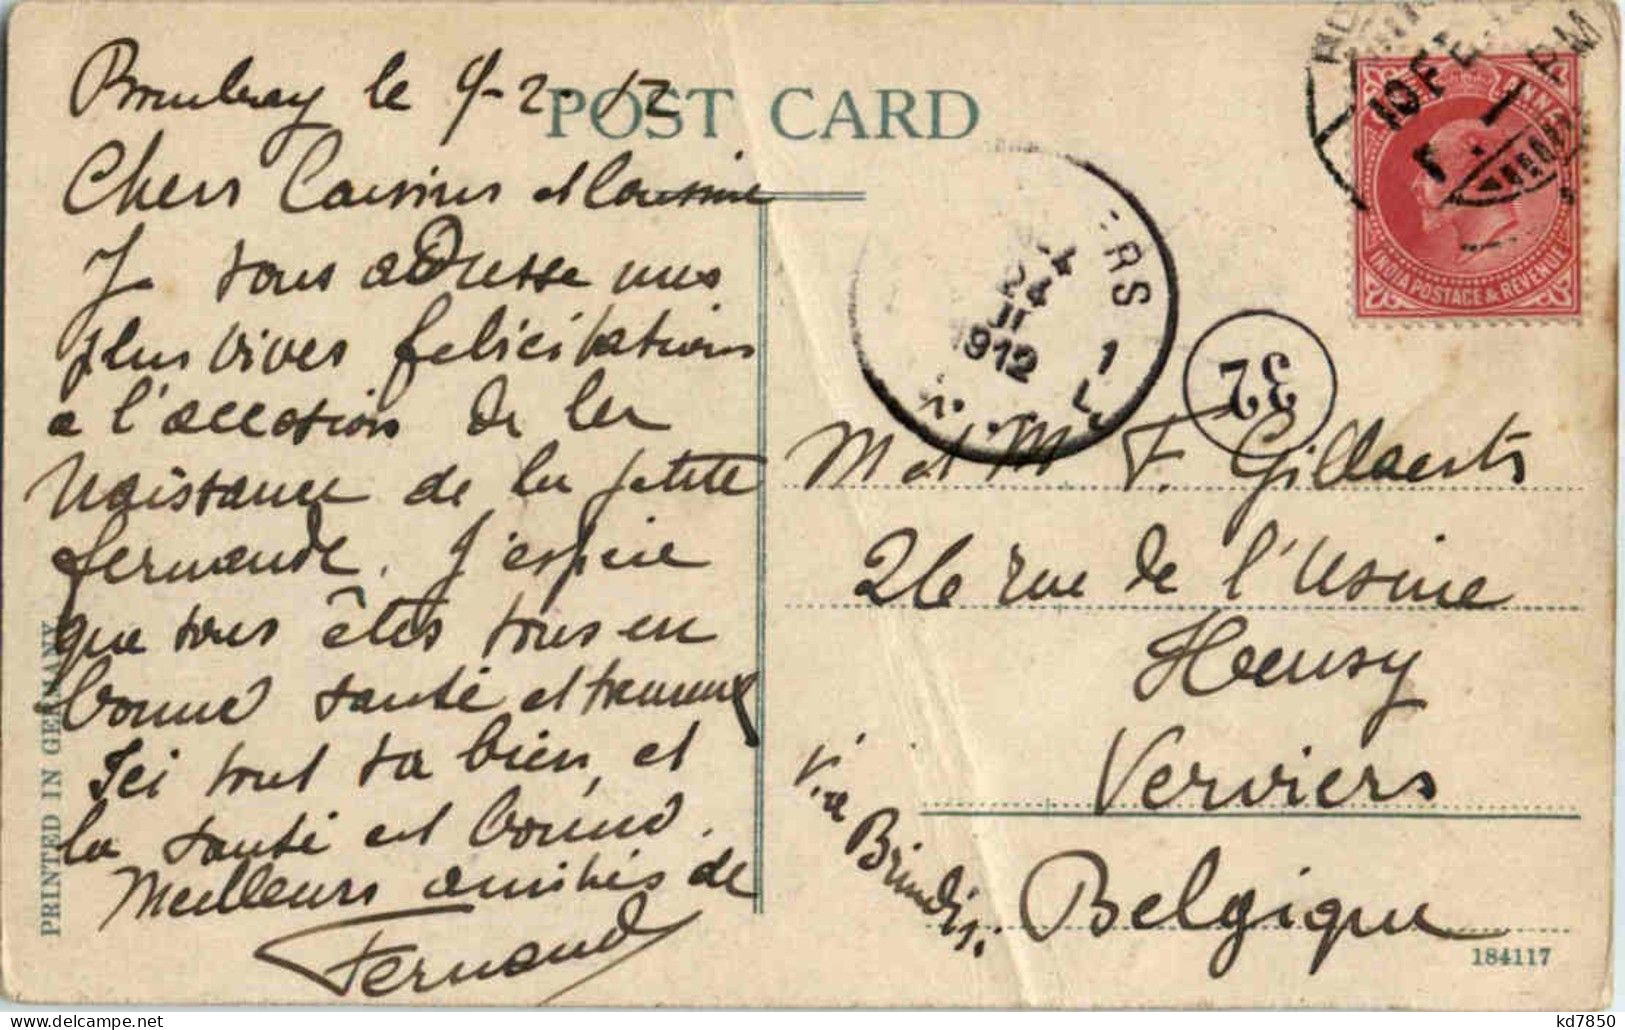 POST CARD
Bombay le 9-2-12
Chers Cousins et Cousine
Je vous adresse mes
plus vives felicitations
a l'occasion de la
Naissance de la petite
fernande. J'espère
que vous êtes tous en
bonne santé et
Ici tout va bien, et
la santé est bonne.
Meilleurs amitiés de
Fernand
PRINTED IN GERMANY
10 FE
1 PM
ANNA
INDIA POSTAGE & REVENUE
ERS
24
II
1912
1
32
M et Me F. Gillaerts
26 rue de l'Usine
Heusy
Verviers
Belgique
Via
Brindisi
184117
kd7850